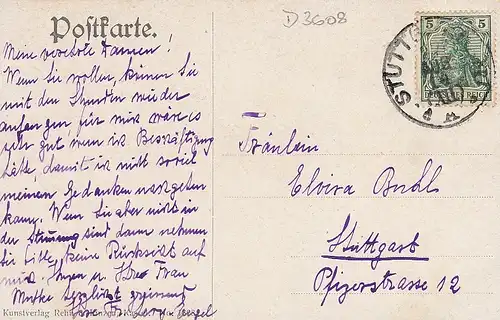 Postkarte.
D3608
Meine verehrte Damen!
Wenn Sie wollen, können Sie
mit den Stunden wieder
anfangen für mich wäre es
sehr gut wenn ich Beschäftigung
hätte, damit ich nicht soviel
meinen Gedanken nachgehen
kann. Wenn Sie aber nicht in
der Stimmung sind dann nehmen
Sie bitte, keine Rücksicht auf
mich. Ihnen u. Ihrer Frau
Mutter herzlichst
Fräulein
Elvira Buchl
Stuttgart
Pfizerstrasse 12
5 5
STUTTG
Kunstverlag